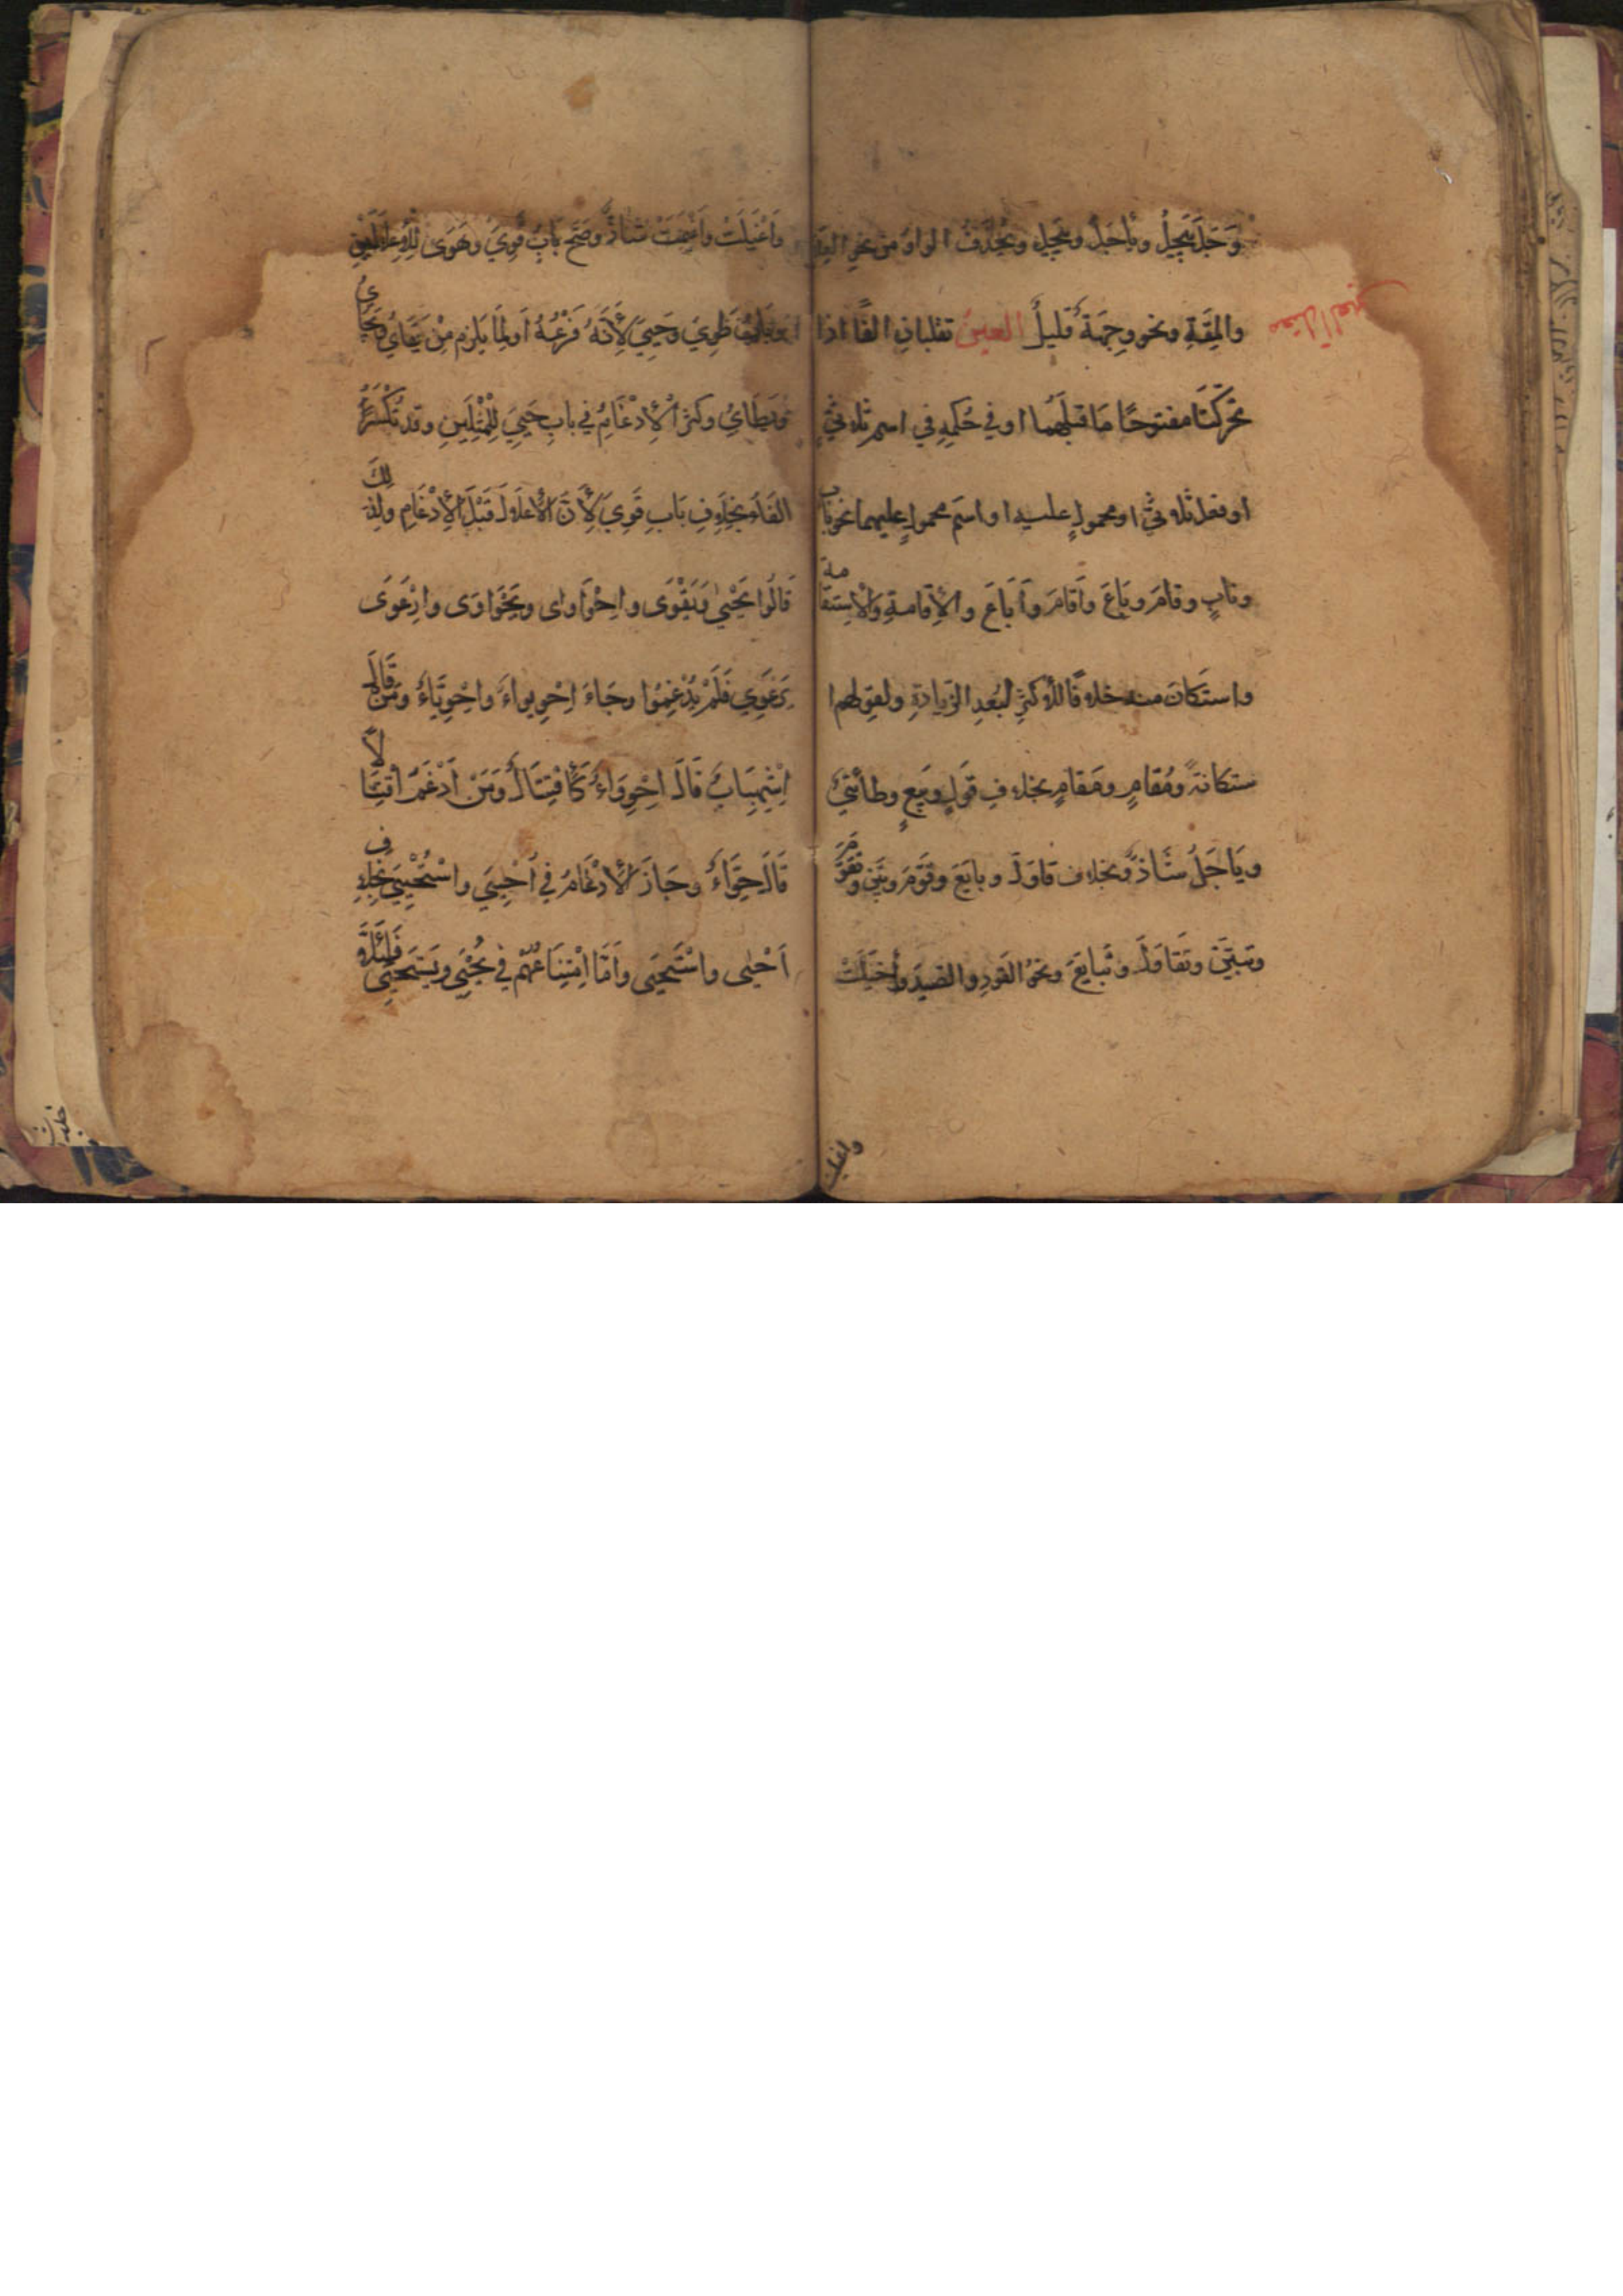 وَجِلَ يَيْجَلُ وياجَلُ وييجل وتُحْذَفُ الواوُ من نحوِ العِدَة
والمِقَةِ ونحو وِجهَةٌ قليلٌ العين تقلبان الفًا اذا
معتل العين
تحرّكتا مفتوحًا مَا قبلَهُما او في حُكمِهِ في اسمٍ ثلاثيٍّ
او فعل ثلاثيٍّ او محمولٍ عليه او اسمٍ محمولٍ عليهما نحو باب
وناب وقامَ وبَاعَ وَاَقَامَ وَاَبَاعَ والاِقامةِ وَالاِستقامة
واستكانَ منه خلافًا للأكثرِ لبُعدِ الزِّيادةِ ولقولهم ا
ستكانةً ومُقامٍ ومَقامٍ بخلاف قَولٍ وبَيعٍ وطائيٌّ
ويَاجَلُ شَاذٌّ وبخلاف قاوَلَ وبايَعَ وقوَّمَ وبيَّن وتقوَّمَ
وتبيَّنَ وتَقَاوَلَ وتَبايَعَ ونحوُ القَوَدِ والصَيَدِ وأَخيَلَتْ
واغيلت
وَاَغْيَلَتْ وَاَغْيَمَتْ شاذٌّ وصَحَّ بَابُ قَوِيَ وهَوَى للاِعلالين
وبابُ طَوِيَ وَحَيِيَ لِأَنَّهُ فَرْعُهُ اَو لِمَا يَلزم مِنْ يَقَايُ ويَحَايُ
ويَطَايُ وكثرَ الاِدْغَامُ في بابِ حَيِيَ لِلْمِثْلَينِ وقد تُكْسَرُ
الفَاءُ بِخِلافِ بَابِ قَوِيَ لِأَنَّ الاِعلالَ قَبْلَ الاِدْغَامِ ولِذلِكَ
قَالُوا يَحْيَى وَيَقْوَى واحْوَاوى ويَحْوَاوَى وارْعَوَى
يَرْعَوِي فَلَمْ يُدْغِمُوا وجَاءَ اِحْوِيواءٌ واحْوِيَّاءٌ ومَن قَالَ
اِشْهِبَابٌ قَالَ احْوِوَاءٌ كَاقْتِتَالٍ وَمَنْ اَدْغَمَ اقْتِتَالاً
قَالَ حِوَّاءٌ وجَازَ الاِدْغَامُ في اُحْيِيَ واسْتُحْيِيَ بخلاف
اَحْيَى واسْتَحْيَى وَاَمَّا اِمْتِنَاعُهُمْ في يُحْيِي ويَسْتَحْيِي فَلِئَلَّا